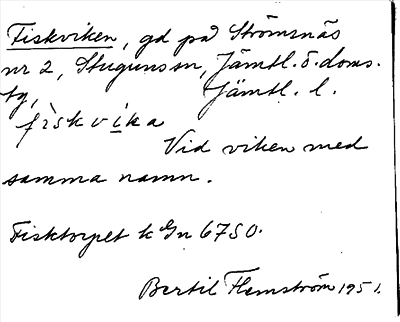 Fiskviken, gd på Strömsnäs
nr 2, Stuguns sn, Jämtl. ö. doms.
tg, Jämtl. l.
fìskvika
Vid viken med
samma namn.
Fisktorpet k Gn 6750.
Bertil Flemström 1951.